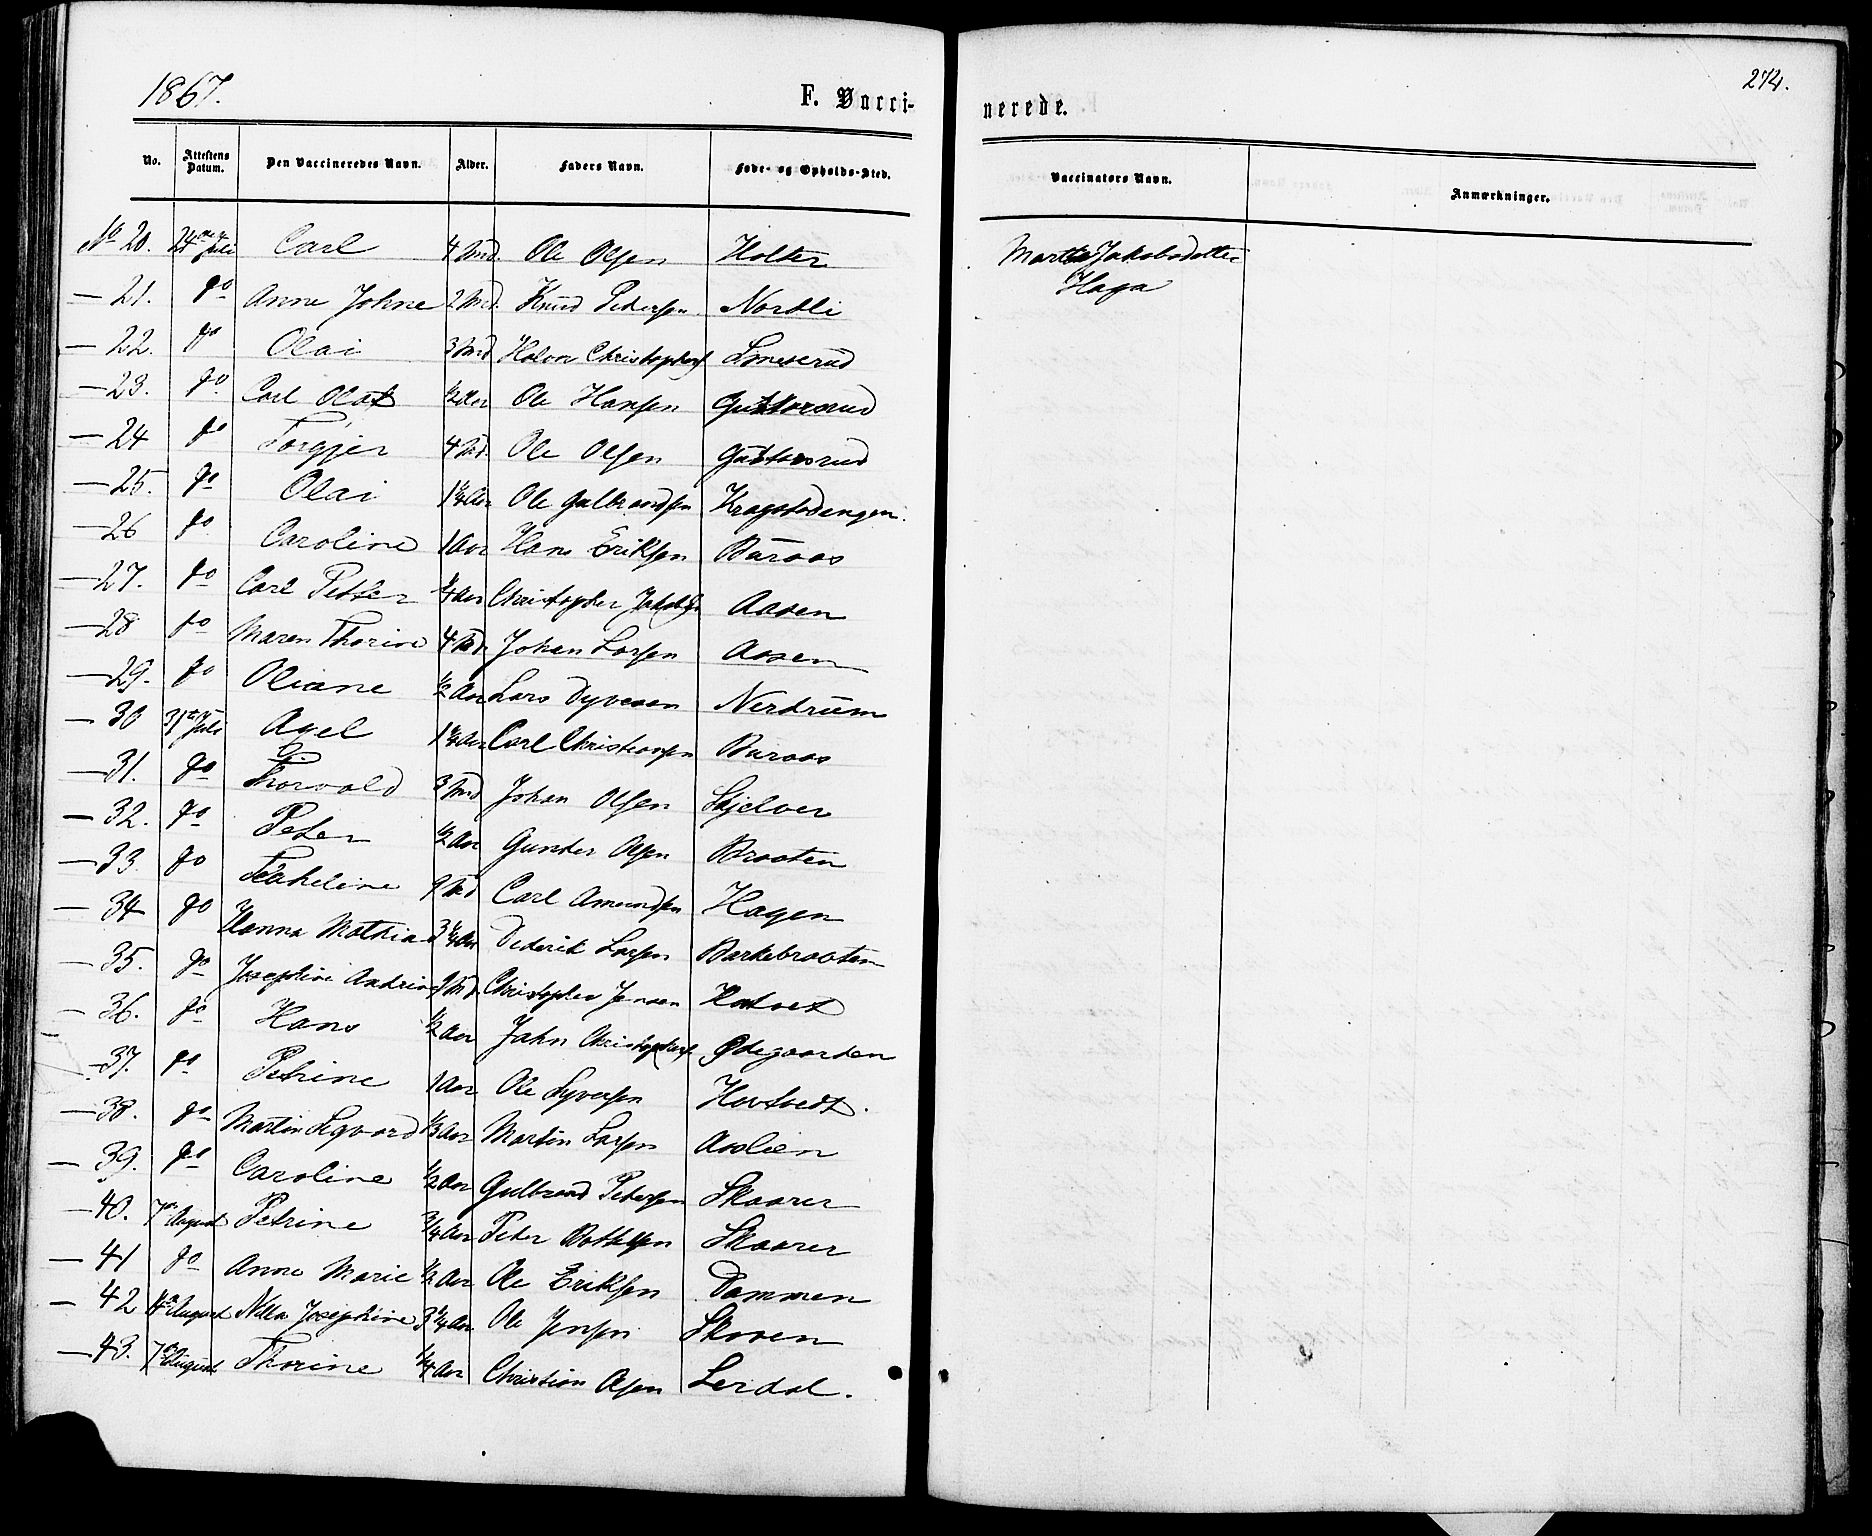 1867.
F. Vacci-
nerede.
274.
No. Attestens Datum. Den Vaccineredes Navn. Alder. Faders Navn. Føde- og Opholds-Sted. Vaccinators Navn. Anmærkninger.
No 20. 24de Juli Carl 4 Md. Ole Olsen Holter Marthe Jakobsdotter
Haga
— 21. do Anne Johne 2 Md. Knud Pedersen Nordli
— 22. do Olai 3 Md Halvor Christophers Smeserud
— 23. do Carl Olaf ½ Aar Ole Hansen Guttorsrud
— 24 do Torgjer 4 Md. Ole Olsen Guttorsrud
— 25. do Olai 1¼ Aar Ole Gulbrandsen Kragstadengen.
— 26 do Caroline 1 Aar Hans Eriksen Buraas
— 27. do Carl Petter ¼ Aar Christopher Jakobs Aasen
— 28 do Maren Thorine 4 Md. Johan Larsen Aasen
— 29. do Oliane ½ Aar Lars Dyvesen Nerdrum
— 30 31te Juli Axel 1¼ Aar Carl Christiansen Buraas
— 31. do Thorvald 3 Md Johan Olsen Skjelver
— 32. do Peter ½ Aar Gunder Olsen Braaten
— 33. do 9 Md Carl Amundsen Hagen
— 34 do Hanna Mathia 3¼ Aar Dederik Larsen Barkebraaten
— 35. do Josephine Andrine 9 Md. Christopher Jensen
— 36. do Hans ½ Aar Jahn Christophers Ødegaarden
— 37. do Petrine 1 Aar Ole Syversen Hovtvedt.
— 38. do Martin Sigvard ⅓ Aar Martin Larsen Aaslien
— 39. do Caroline ½ Aar Gulbrand Petersen Skaarer
— 40. 7de August Petrine ¾ Aar Peter Skaarer
— 41 do Anne Marie ½ Aar Ole Eriksen Dammen
— 42 14de August Nilla Josephine 3¼ Aar Ole Jensen Skoven
— 43. 7de August Thorine ¼ Aar Christian Olsen Lerdal.